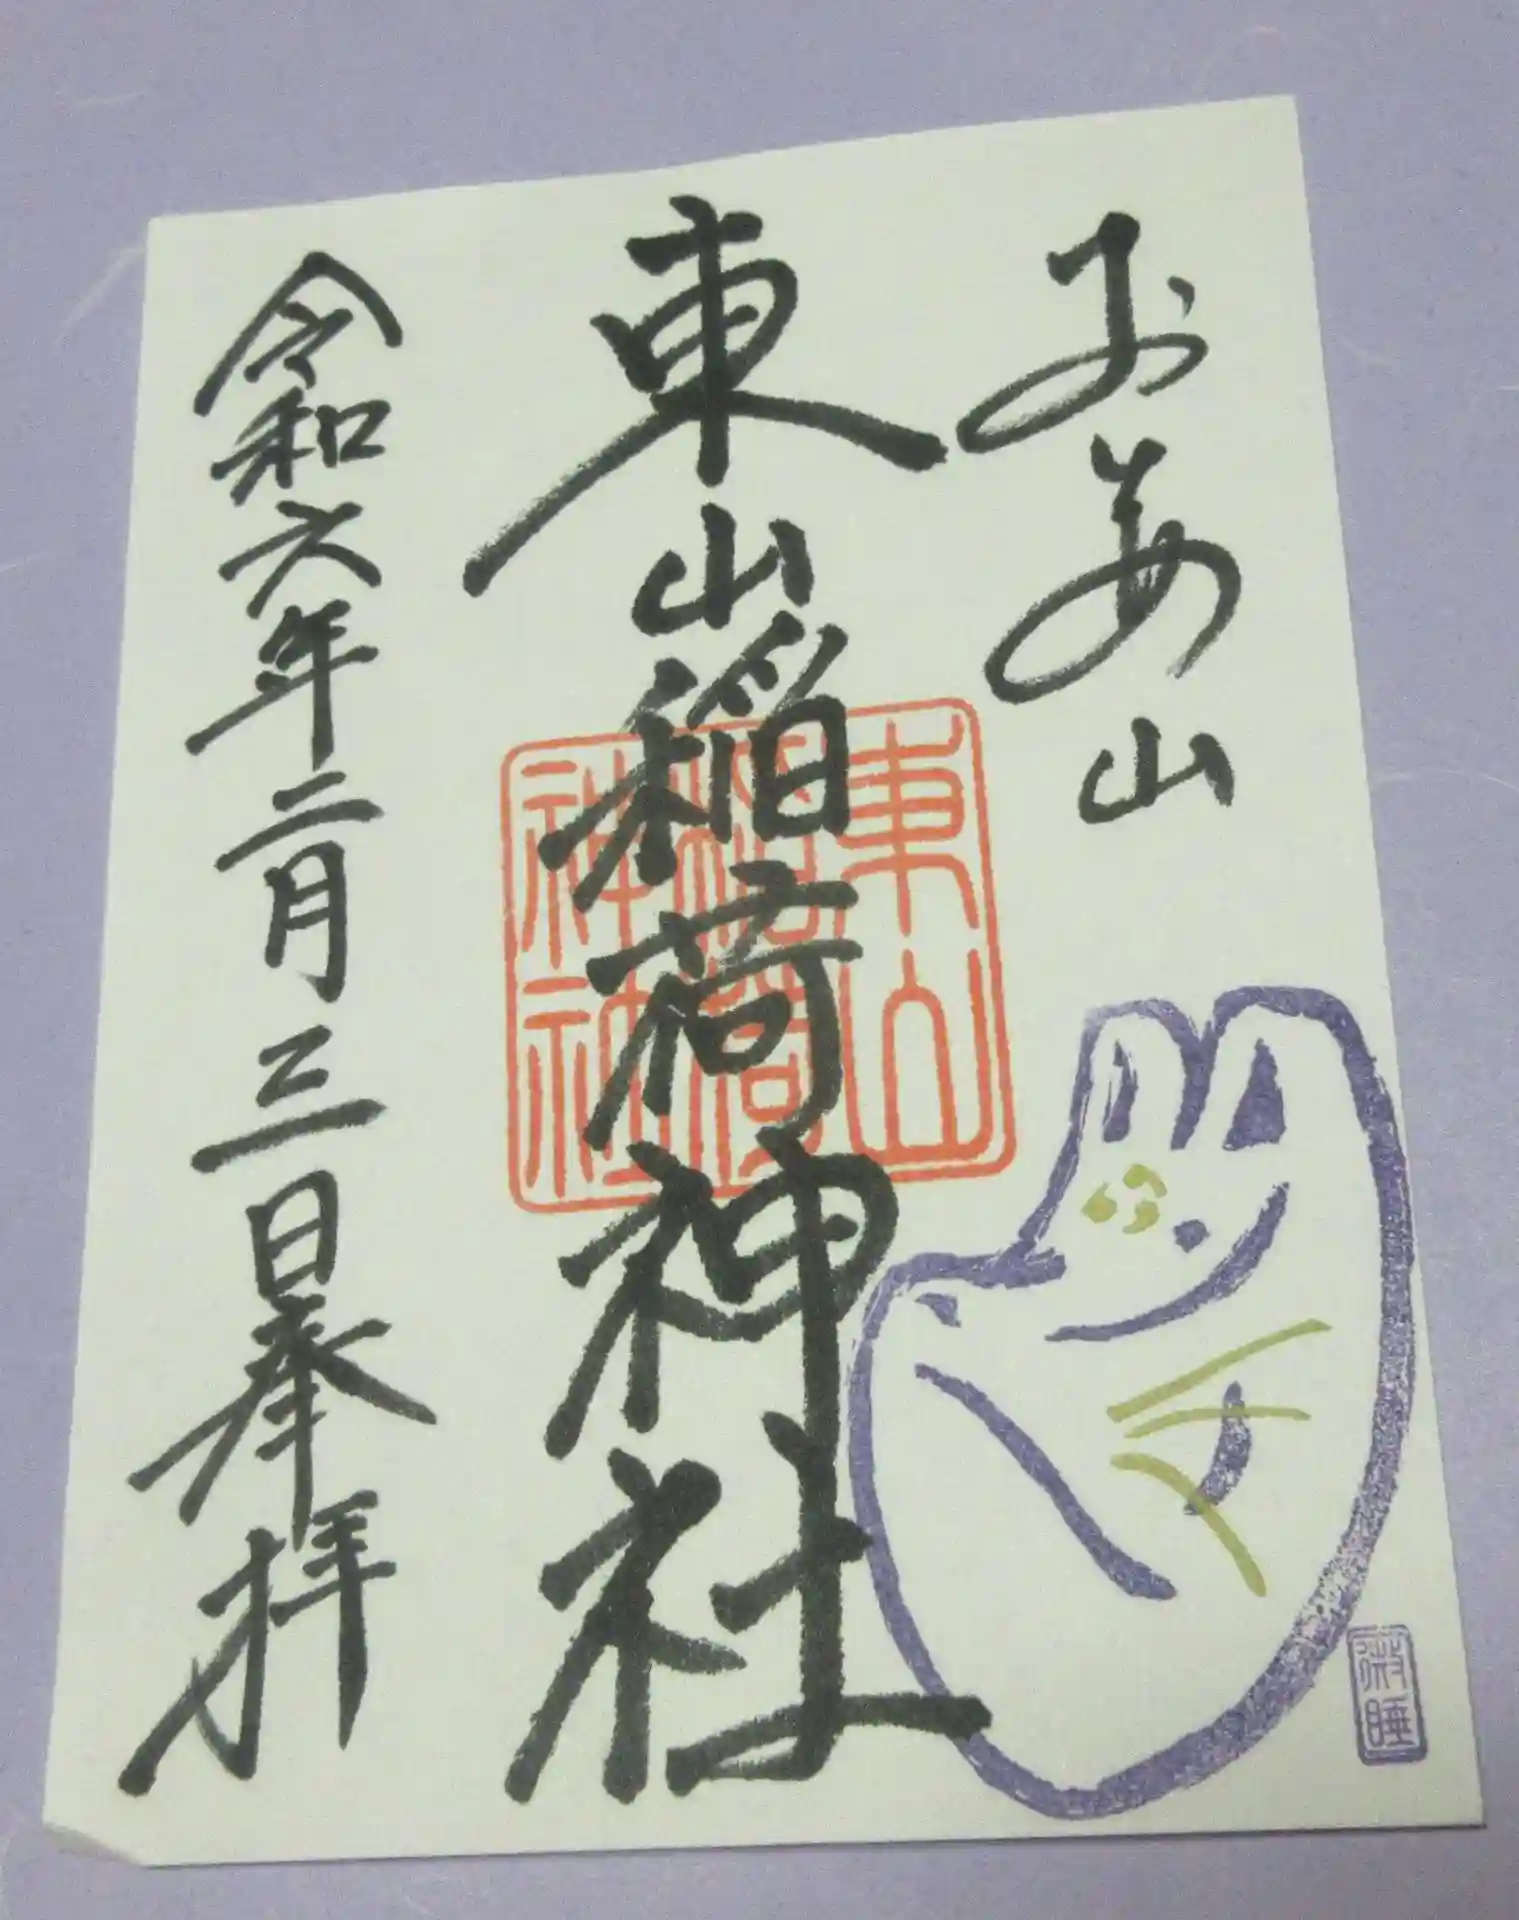 お 山
東山稲荷神社
東山
稲荷
神社
令和六年二月三日奉拝
微睡